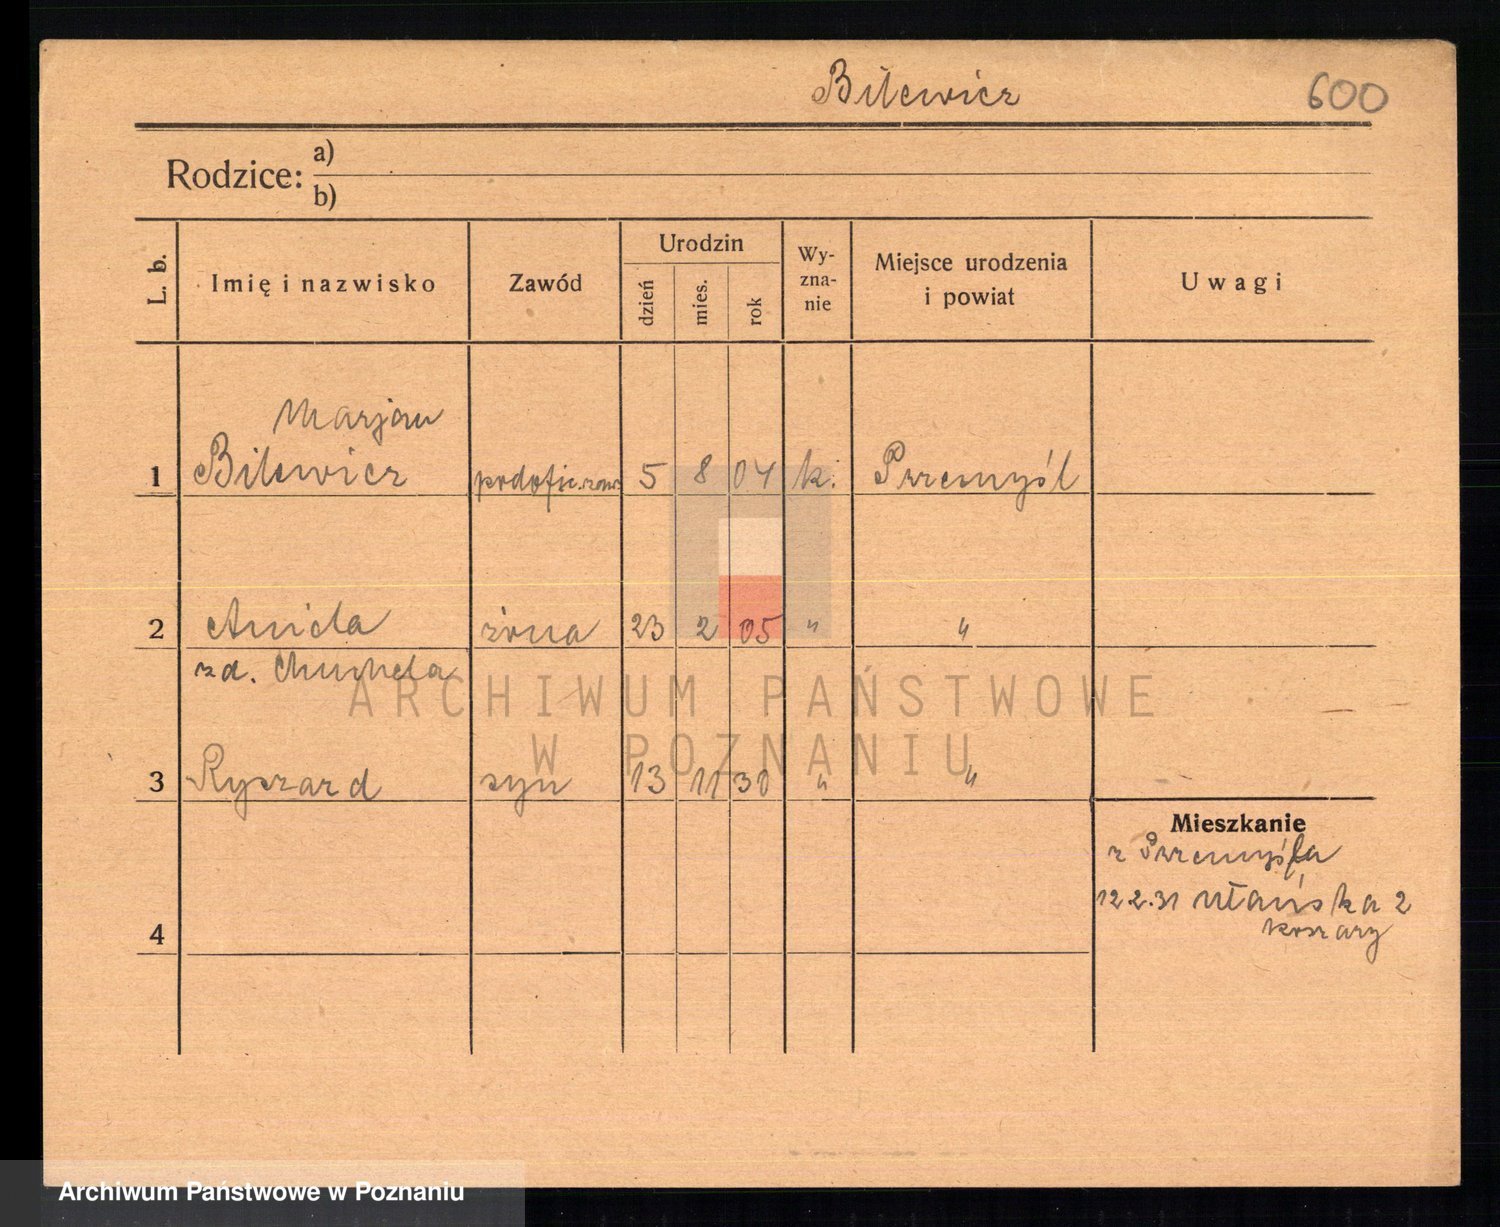 Bilewicz 600
Rodzice: a)
b)
L. b. Imię i nazwisko Zawód Urodzin dzień mies. rok Wy-zna-nie Miejsce urodzenia i powiat Uwagi
Marjan
1 Bilewicz podofic. zaw. 5 8 04 k. Przemyśl
2 Aniela żona 23 2 05 " "
zd.
3 Ryszard syn 13 11 30 " "
Mieszkanie
z Przemyśla
12 2.31 Ułańska 2
koszary
4
ARCHIWUM PAŃSTWOWE
W POZNANIU
Archiwum Państwowe w Poznaniu